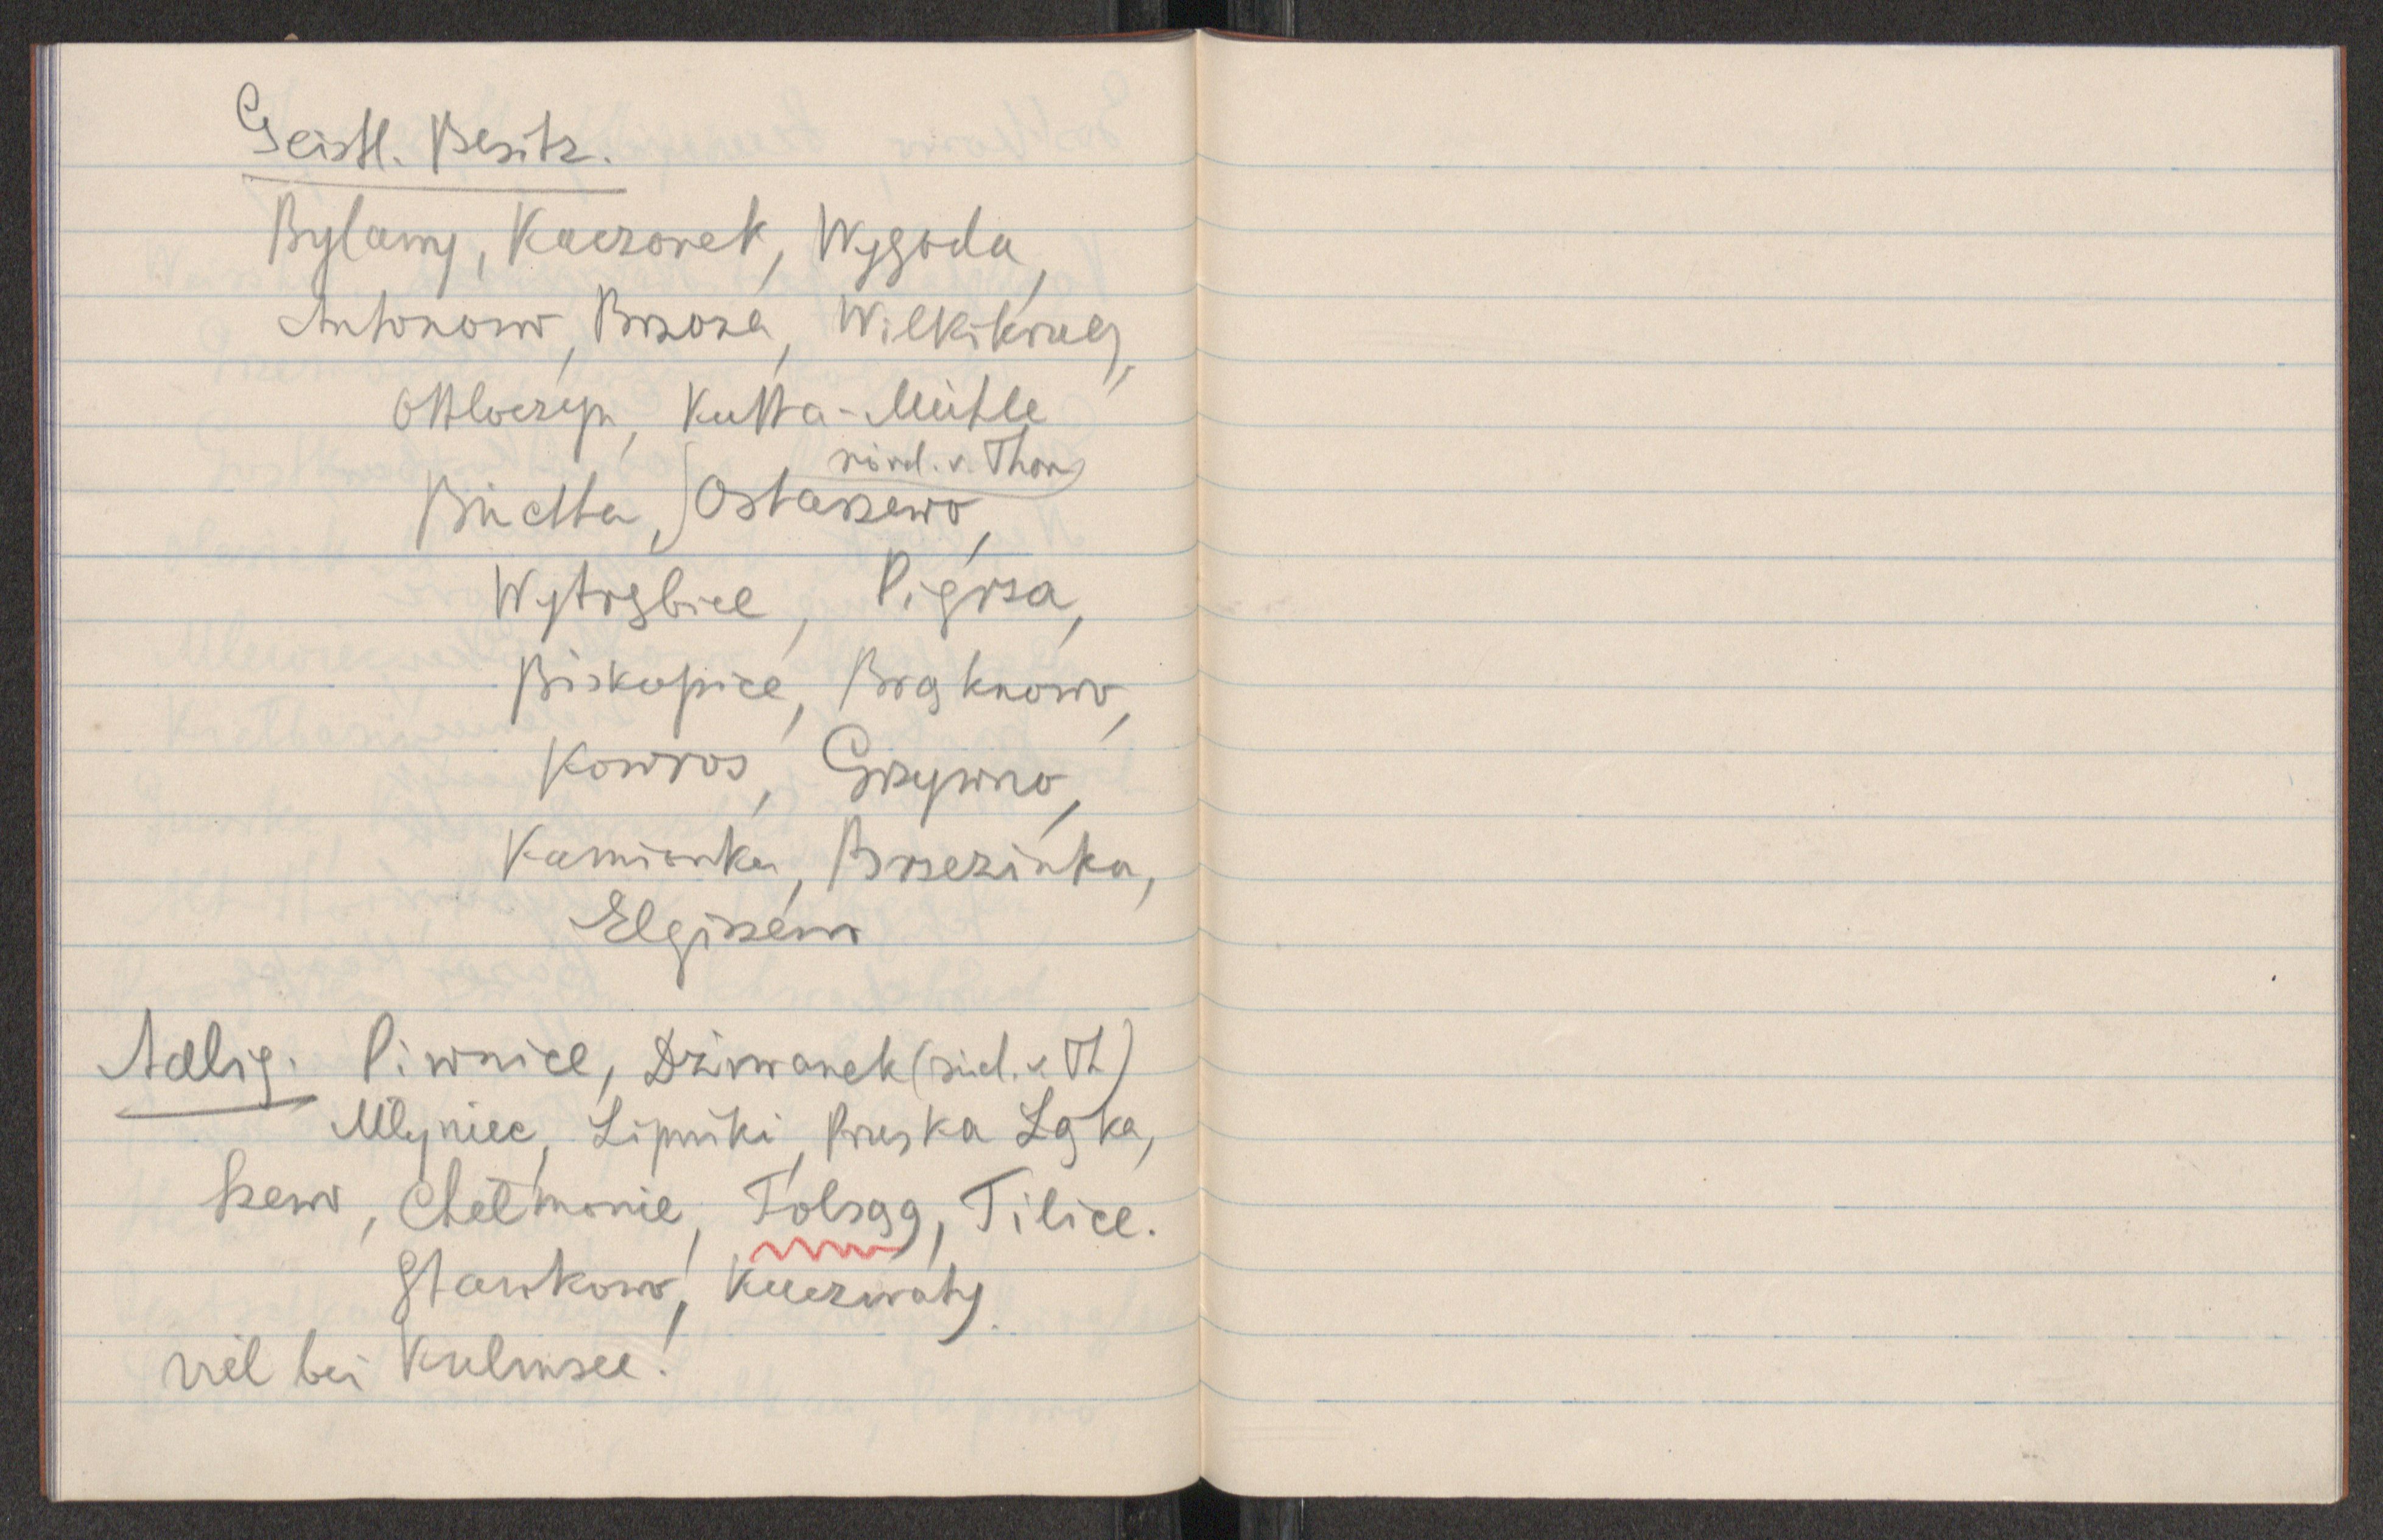 Geistl. Besitz.
Bylamy, Kaczorek, Wygoda,
Antonow, Brzoza, Wilkikrug,
Ottloczyn, Kutta-Mühle
nörd. v. Thorn
Büchta, Ostaszewo,
Wytrębice, Pigrża,
Biskupice, Brąknowo,
Kowros, Grzywno,
Kamionka, Brzezinka,
Elgiszewo
Adlig. Piwnice, Dziwanek (süd. v. Th)
Młyniec, Lipniki, Pruska Łąka,
Szewo, Chełmonie, Folsąg, Tilice.
Sławkowo, Kuczwały.
viel bei Kulmsee.